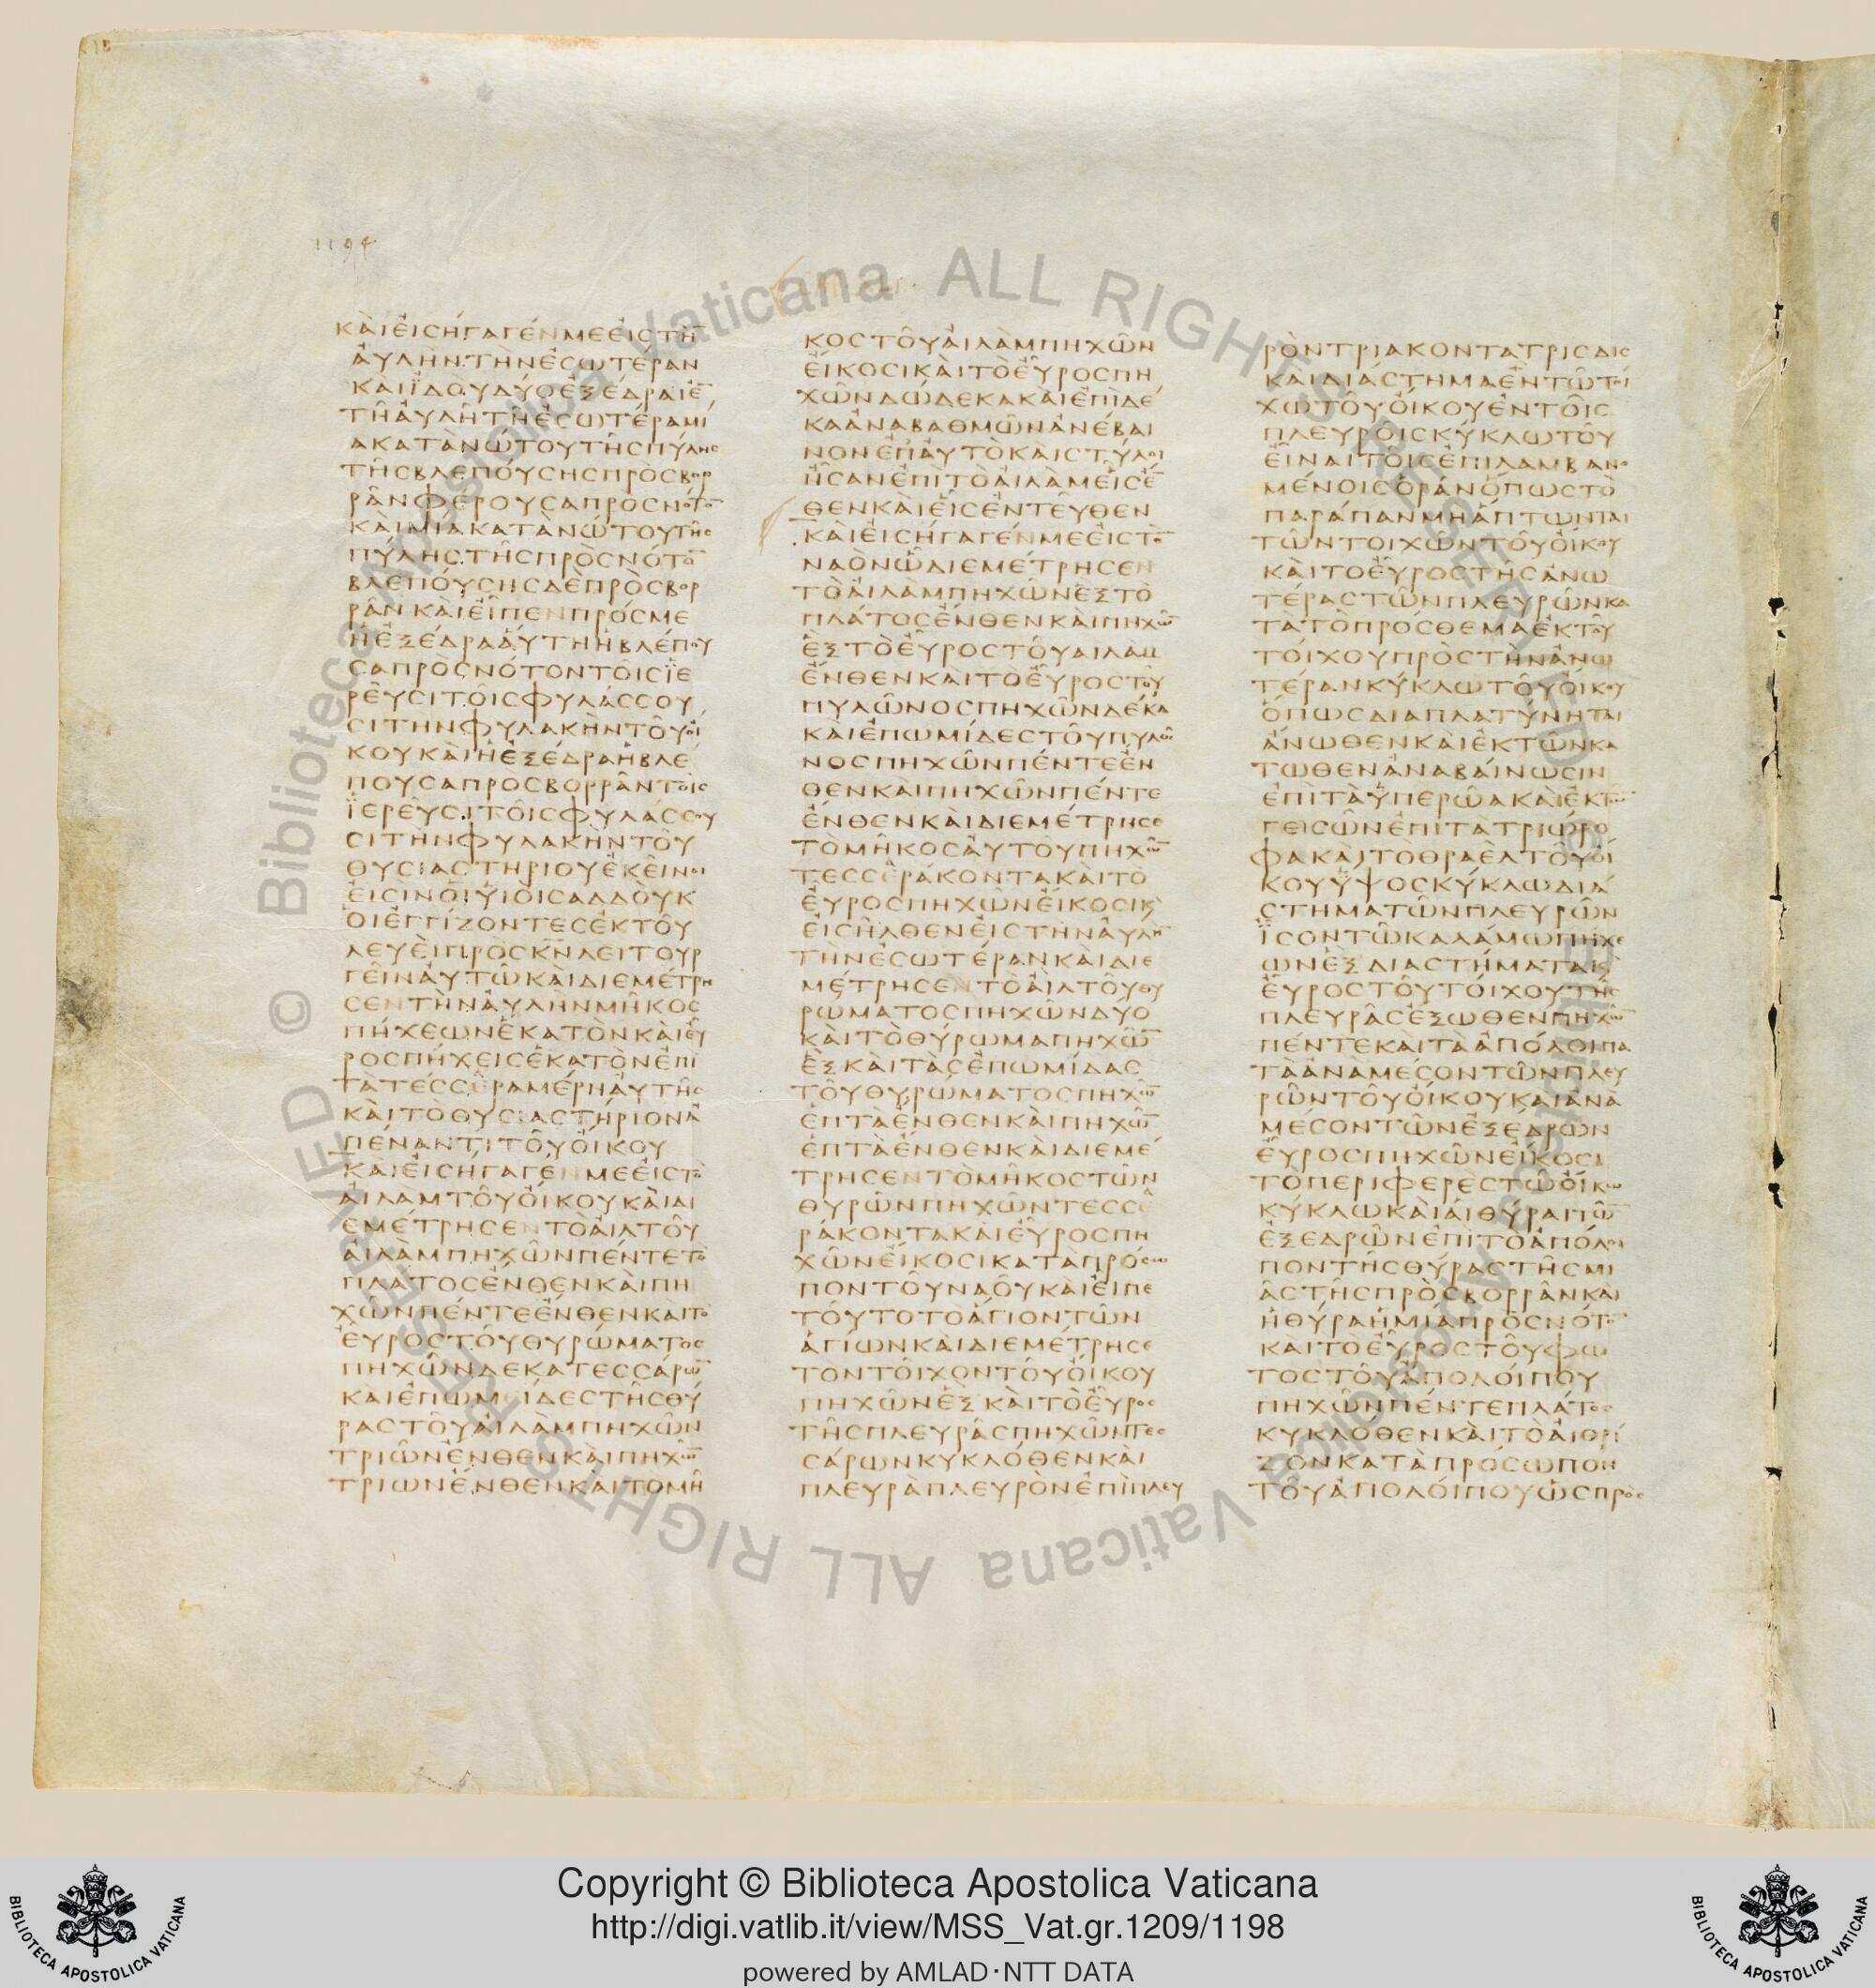 1194
ΚΑΙΕΙΣΗΓΑΓΕΝΜΕΕΙΣΤΗ̅
ΑΥΛΗΝΤΗΝΕΣΩΤΕΡΑΝ
ΚΑΙΪΔΟΥΔΥΟΕΞΕΔΡΑΙΕ̅
ΤΗΑΥΛΗΤΗΕΣΩΤΕΡΑΜΙ
ΑΚΑΤΑΝΩΤΟΥΤΗΣΠΥΛΗΣ
ΤΗΣΒΛΕΠΟΥΣΗΣΠΡΟΣΒΟΡ
ΡΑΝΦΕΡΟΥΣΑΠΡΟΣΝΟΤΟ̅
ΚΑΙΜΙΑΚΑΤΑΝΩΤΟΥΤΗΣ
ΠΥΛΗΣΤΗΣΠΡΟΣΝΟΤΟ̅
ΒΛΕΠΟΥΣΗΣΔΕΠΡΟΣΒΟΡ
ΡΑΝΚΑΙΕΙΠΕΝΠΡΟΣΜΕ
ΗΕΞΕΔΡΑΑΥΤΗΗΒΛΕΠΟΥ
ΣΑΠΡΟΣΝΟΤΟΝΤΟΙΣΪΕ
ΡΕΥΣΙΤΟΙΣΦΥΛΑΣΣΟΥ
ΣΙΤΗΝΦΥΛΑΚΗΝΤΟΥΟΙ
ΚΟΥΚΑΙΗΕΞΕΔΡΑΗΒΛΕ
ΠΟΥΣΑΠΡΟΣΒΟΡΡΑΝΤΟΙΣ
ΪΕΡΕΥΣΙΤΟΙΣΦΥΛΑΣΣΟΥ
ΣΙΤΗΝΦΥΛΑΚΗΝΤΟΥ
ΘΥΣΙΑΣΤΗΡΙΟΥΕΚΕΙΝΟΙ
ΕΙΣΙΝΟΙΫΙΟΙΣΑΔΔΟΥΚ
ΟΙΕΓΓΙΖΟΝΤΕΣΕΚΤΟΥ
ΛΕΥΕΙΠΡΟΣΚ̅Ν̅ΛΕΙΤΟΥΡ
ΓΕΙΝΑΥΤΩΚΑΙΔΙΕΜΕΤΡΗ
ΣΕΝΤΗΝΑΥΛΗΝΜΗΚΟΣ
ΠΗΧΕΩΝΕΚΑΤΟΝΚΑΙΕΥ
ΡΟΣΠΗΧΕΙΣΕΚΑΤΟΝΕΠΙ
ΤΑΤΕΣΣΕΡΑΜΕΡΗΑΥΤΗΣ
ΚΑΙΤΟΘΥΣΙΑΣΤΗΡΙΟΝΑ
ΠΕΝΑΝΤΙΤΟΥΟΙΚΟΥ
ΚΑΙΕΙΣΗΓΑΓΕΝΜΕΕΙΣΤΟ
ΑΙΛΑΜΤΟΥΟΙΚΟΥΚΑΙΔΙ
ΕΜΕΤΡΗΣΕΝΤΟΑΙΛΤΟΥ
ΑΙΛΑΜΠΗΧΩΝΠΕΝΤΕΤΟ
ΠΛΑΤΟΣΕΝΘΕΝΚΑΙΠΗ
ΧΩΝΠΕΝΤΕΕΝΘΕΝΚΑΙΤΟ
ΕΥΡΟΣΤΟΥΘΥΡΩΜΑΤΟΣ
ΠΗΧΩΝΔΕΚΑΤΕΣΣΑΡΩ̅
ΚΑΙΕΠΩΜΕΙΔΕΣΤΗΣΘΥ
ΡΑΣΤΟΥΑΙΛΑΜΠΗΧΩΝ
ΤΡΙΩΝΕΝΘΕΝΚΑΙΠΗΧΩ̅
ΤΡΙΩΝΕΝΘΕΝΚΑΙΤΟΜΗ
ΚΟΣΤΟΥΑΙΛΑΜΠΗΧΩΝ
ΕΙΚΟΣΙΚΑΙΤΟΕΥΡΟΣΠΗ
ΧΩΝΔΩΔΕΚΑΚΑΙΕΠΙΔΕ
ΚΑΑΝΑΒΑΘΜΩΝΑΝΕΒΑΙ
ΝΟΝΕΠΑΥΤΟΚΑΙΣΤΥΛΟΙ
ΗΣΑΝΕΠΙΤΟΑΙΛΑΜΕΙΣΕ̅
ΘΕΝΚΑΙΕΙΣΕΝΤΕΥΘΕΝ
ΚΑΙΕΙΣΗΓΑΓΕΝΜΕΕΙΣΤΟ̅
ΝΑΟΝΩΔΙΕΜΕΤΡΗΣΕΝ
ΤΟΑΙΛΑΜΠΗΧΩΝΕΞΤΟ
ΠΛΑΤΟΣΕΝΘΕΝΚΑΙΠΗΧΩ̅
ΕΞΤΟΕΥΡΟΣΤΟΥΑΙΛΑΜ
ΕΝΘΕΝΚΑΙΤΟΕΥΡΟΣΤΟΥ
ΠΥΛΩΝΟΣΠΗΧΩΝΔΕΚΑ
ΚΑΙΕΠΩΜΙΔΕΣΤΟΥΠΥΛΩ
ΝΟΣΠΗΧΩΝΠΕΝΤΕΕΝ
ΘΕΝΚΑΙΠΗΧΩΝΠΕΝΤΕ
ΕΝΘΕΝΚΑΙΔΙΕΜΕΤΡΗΣΕ
ΤΟΜΗΚΟΣΑΥΤΟΥΠΗΧΩ̅
ΤΕΣΣΕΡΑΚΟΝΤΑΚΑΙΤΟ
ΕΥΡΟΣΠΗΧΩΝΕΙΚΟΣΙΚ
ΕΙΣΗΛΘΕΝΕΙΣΤΗΝΑΥΛΗ̅
ΤΗΝΕΣΩΤΕΡΑΝΚΑΙΔΙΕ
ΜΕΤΡΗΣΕΝΤΟΑΙΛΤΟΥΘΥ
ΡΩΜΑΤΟΣΠΗΧΩΝΔΥΟ
ΚΑΙΤΟΘΥΡΩΜΑΠΗΧΩ̅
ΕΞΚΑΙΤΑΣΕΠΩΜΙΔΑΣ
ΤΟΥΘΥΡΩΜΑΤΟΣΠΗΧΩ̅
ΕΠΤΑΕΝΘΕΝΚΑΙΠΗΧΩ̅
ΕΠΤΑΕΝΘΕΝΚΑΙΔΙΕΜΕ
ΤΡΗΣΕΝΤΟΜΗΚΟΣΤΩΝ
ΘΥΡΩΝΠΗΧΩΝΤΕΣΣΕ
ΡΑΚΟΝΤΑΚΑΙΕΥΡΟΣΠΗ
ΧΩΝΕΙΚΟΣΙΚΑΤΑΠΡΟΣΩ
ΠΟΝΤΟΥΝΑΟΥΚΑΙΕΙΠΕ
ΤΟΥΤΟΤΟΑΓΙΟΝΤΩΝ
ΑΓΙΩΝΚΑΙΔΙΕΜΕΤΡΗΣΕ
ΤΟΝΤΟΙΧΟΝΤΟΥΟΙΚΟΥ
ΠΗΧΩΝΕΞΚΑΙΤΟΕΥΡΟΣ
ΤΗΣΠΛΕΥΡΑΣΠΗΧΩΝΤΕΣ
ΣΑΡΩΝΚΥΚΛΟΘΕΝΚΑΙ
ΠΛΕΥΡΑΠΛΕΥΡΟΝΕΠΙΠΛΕΥ
ΡΟΝΤΡΙΑΚΟΝΤΑΤΡΙΣΔΙΣ
ΚΑΙΔΙΑΣΤΗΜΑΕΝΤΩΤΟΙ
ΧΩΤΟΥΟΙΚΟΥΕΝΤΟΙΣ
ΠΛΕΥΡΟΙΣΚΥΚΛΩΤΟΥ
ΕΙΝΑΙΤΟΙΣΕΠΙΛΑΜΒΑΝΟ
ΜΕΝΟΙΣΟΡΑΝΟΠΩΣΤΟ
ΠΑΡΑΠΑΝΜΗΑΠΤΩΝΤΑΙ
ΤΩΝΤΟΙΧΩΝΤΟΥΟΙΚΟΥ
ΚΑΙΤΟΕΥΡΟΣΤΗΣΑΝΩ
ΤΕΡΑΣΤΩΝΠΛΕΥΡΩΝΚΑ
ΤΑΤΟΠΡΟΣΘΕΜΑΕΚΤΟΥ
ΤΟΙΧΟΥΠΡΟΣΤΗΝΑΝΩ
ΤΕΡΑΝΚΥΚΛΩΤΟΥΟΙΚΟΥ
ΟΠΩΣΔΙΑΠΛΑΤΥΝΗΤΑΙ
ΑΝΩΘΕΝΚΑΙΕΚΤΩΝΚΑ
ΤΩΘΕΝΑΝΑΒΑΙΝΩΣΙΝ
ΕΠΙΤΑΫΠΕΡΩΑΚΑΙΕΚΤΩ̅
ΓΕΙΣΩΝΕΠΙΤΑΤΡΙΩΡΟ
ΦΑΚΑΙΤΟΘΡΑΕΛΤΟΥΟΙ
ΚΟΥΫΨΟΣΚΥΚΛΩΔΙΑ
ΣΤΗΜΑΤΩΝΠΛΕΥΡΩΝ
ΪΣΟΝΤΩΚΑΛΑΜΩΠΗΧΕ
ΩΝΕΞΔΙΑΣΤΗΜΑΤΑΚ
ΕΥΡΟΣΤΟΥΤΟΙΧΟΥΤΗΣ
ΠΛΕΥΡΑΣΕΞΩΘΕΝΠΗΧΩ̅
ΠΕΝΤΕΚΑΙΤΑΑΠΟΛΟΙΠΑ
ΤΑΑΝΑΜΕΣΟΝΤΩΝΠΛΕΥ
ΡΩΝΤΟΥΟΙΚΟΥΚΑΙΑΝΑ
ΜΕΣΟΝΤΩΝΕΞΕΔΡΩΝ
ΕΥΡΟΣΠΗΧΩΝΕΙΚΟΣΙ
ΤΟΠΕΡΙΦΕΡΕΣΤΩΟΙΚΩ
ΚΥΚΛΩΚΑΙΑΙΘΥΡΑΙΤΩ̅
ΕΞΕΔΡΩΝΕΠΙΤΟΑΠΟΛΟΙ
ΠΟΝΤΗΣΘΥΡΑΣΤΗΣΜΙ
ΑΣΤΗΣΠΡΟΣΒΟΡΡΑΝΚΑΙ
ΗΘΥΡΑΗΜΙΑΠΡΟΣΝΟΤΟ̅
ΚΑΙΤΟΕΥΡΟΣΤΟΥΦΩ
ΤΟΣΤΟΥΑΠΟΛΟΙΠΟΥ
ΠΗΧΩΝΠΕΝΤΕΠΛΑΤΟΣ
ΚΥΚΛΟΘΕΝΚΑΙΤΟΔΙΟΡΙ
ΖΟΝΚΑΤΑΠΡΟΣΩΠΟΝ
ΤΟΥΑΠΟΛΟΙΠΟΥΩΣΠΡΟΣ
© Biblioteca Apostolica Vaticana ALL RIGHTS RESERVED
Copyright © Biblioteca Apostolica Vaticana
http://digi.vatlib.it/view/MSS_Vat.gr.1209/1198
powered by AMLAD·NTT DATA
BIBLIOTECA APOSTOLICA VATICANA
BIBLIOTECA APOSTOLICA VATICANA